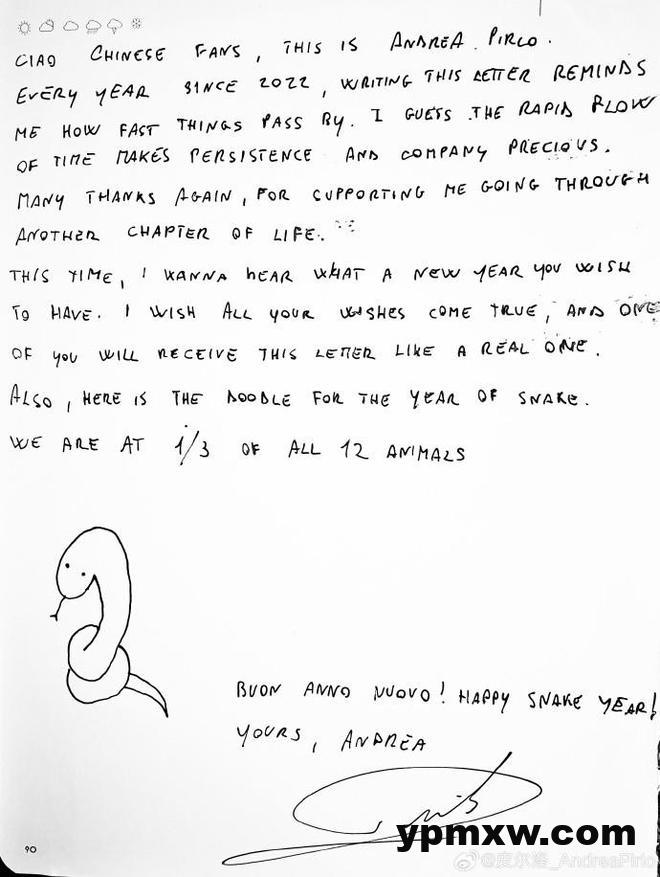 CIAO CHINESE FANS, THIS IS ANDREA PIRLO.
EVERY YEAR SINCE 2022, WRITING THIS LETTER REMINDS
ME HOW FAST THINGS PASS BY. I GUESS THE RAPID FLOW
OF TIME MAKES PERSISTENCE AND COMPANY PRECIOUS.
MANY THANKS AGAIN, FOR SUPPORTING ME GOING THROUGH
ANOTHER CHAPTER OF LIFE.
THIS TIME, I WANNA HEAR WHAT A NEW YEAR YOU WISH
TO HAVE. I WISH ALL YOUR WISHES COME TRUE, AND ONE
OF YOU WILL RECEIVE THIS LETTER LIKE A REAL ONE.
ALSO, HERE IS THE DOODLE FOR THE YEAR OF SNAKE.
WE ARE AT 1/3 OF ALL 12 ANIMALS
BUON ANNO NUOVO! HAPPY SNAKE YEAR!
YOURS, ANDREA
ypmxw.com
@皮尔洛_AndreaPirlo
90